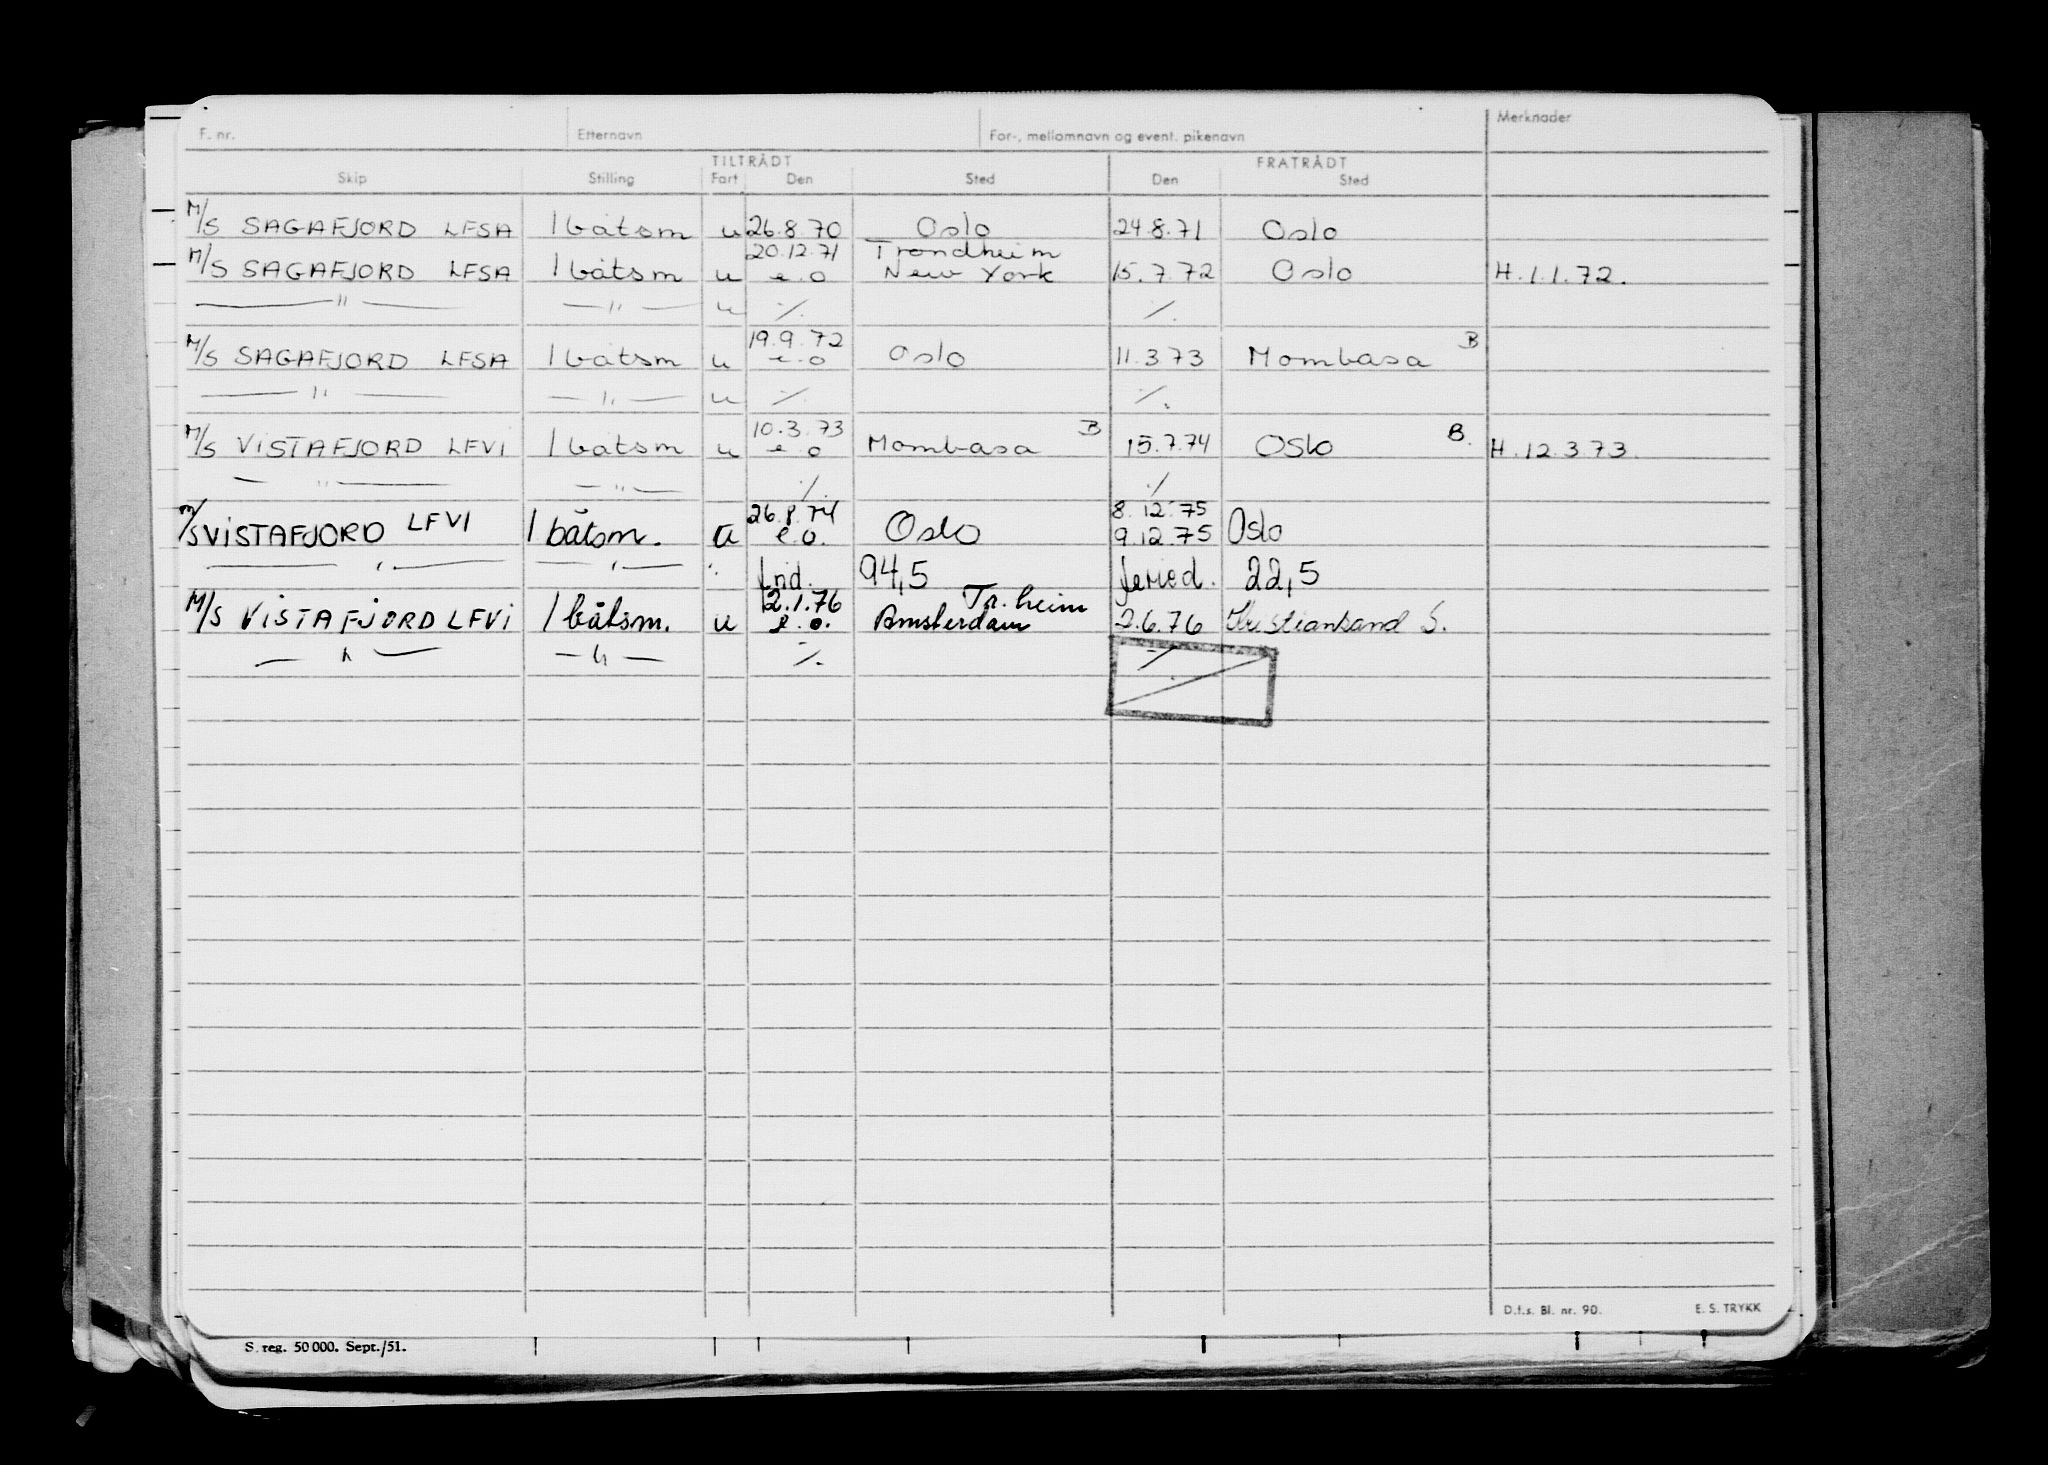 F. nr. Etternavn For-, mellomnavn og event. pikenavn Merknader
TILTRÅDT FRATRÅDT
Skip Stilling Fart Den Sted Den Sted
M/S SAGAFJORD LFSA 1 båtsm u 26.8.70 Oslo 24.8.71 Oslo
20.12.71 Trondheim
M/S SAGAFJORD LFSA 1 båtsm u e.o New York 15.7.72 Oslo H.1.1.72.
— " — — " — u ·/. ·/.
19.9.72 B
M/S SAGAFJORD LFSA 1 båtsm u e.o Oslo 11.3.73 Mombasa
— " — — " — u ·/. ·/.
10.3.73 B B.
M/S VISTAFJORD LFVI 1 båtsm u e.o Mombasa 15.7.74 Oslo H.12.3.73.
— " — — " — ·/. ·/.
26.8.74 8.12.75
M/S VISTAFJORD LFVI 1 båtsm. u e.o. Oslo 9.12.75 Oslo
— " — — " — frid. 94,5 feried. 22,5
2.1.76 Tr.heim
M/S VISTAFJORD LFVI 1 båtsm. u e.o. Amsterdam 2.6.76 Kristiansand S.
— " — — " — ·/. ·/.
D.f.s. Bl. nr. 90. E. S. TRYKK
S. reg. 50 000. Sept./51.